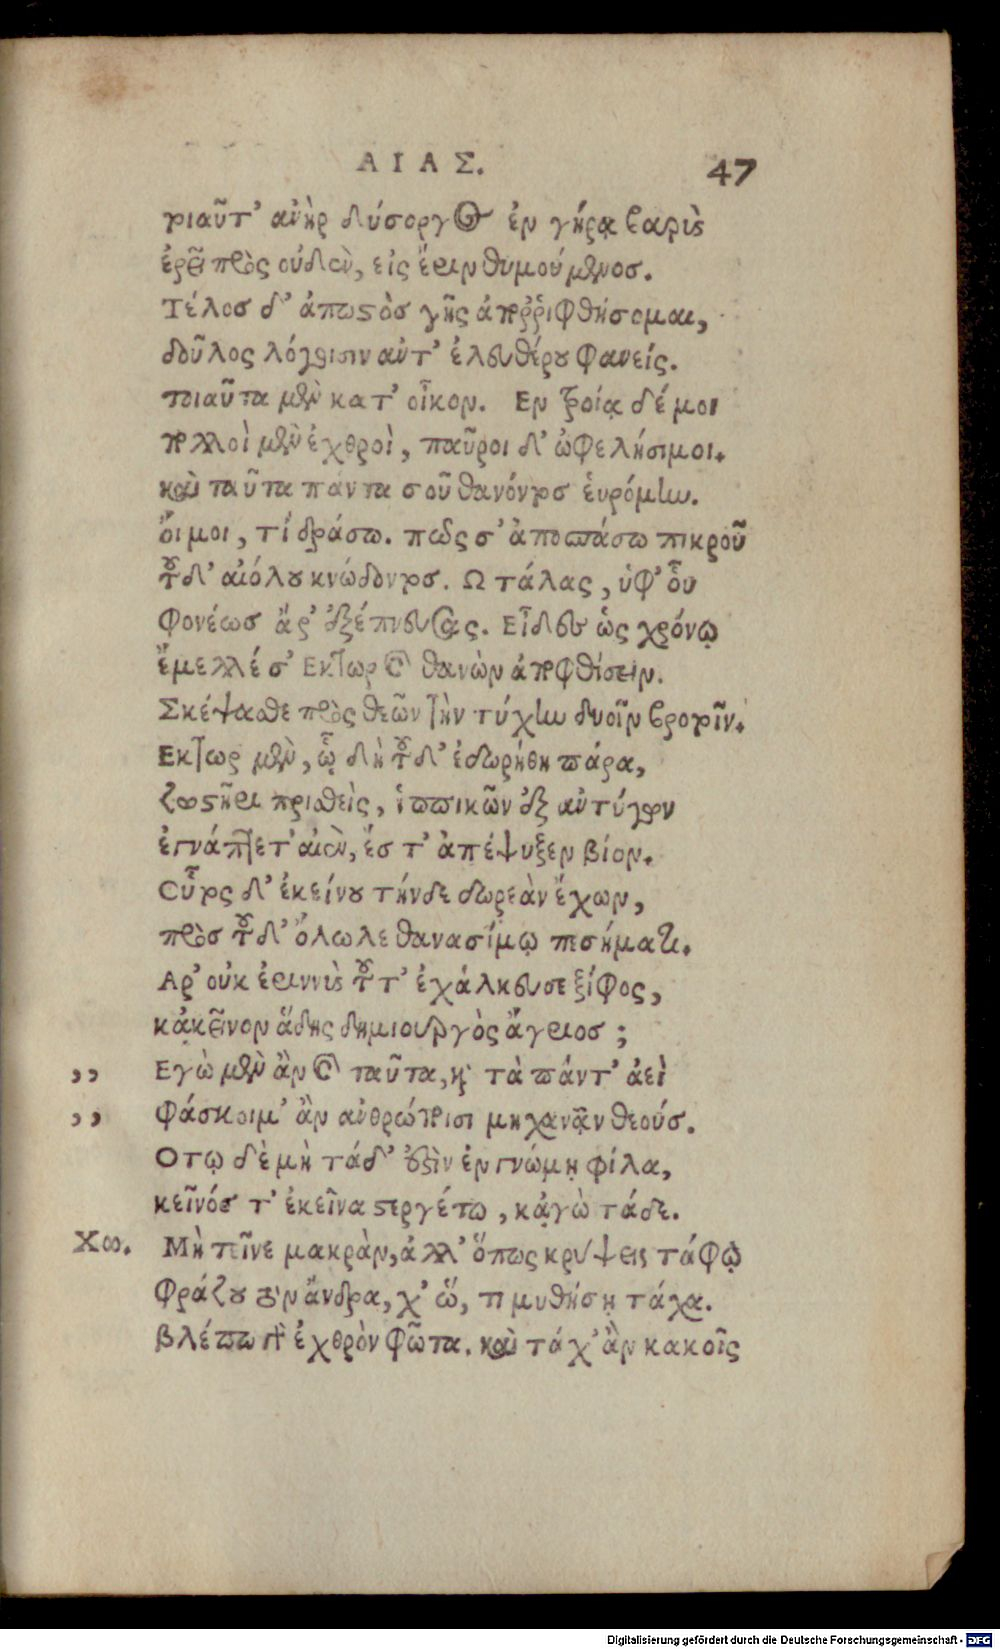 ΑΙΑΣ. 47
τοιαῦτ' ἀνὴρ δύσοργος ἐν γήρᾳ βαρὺς
ἐρεῖ πρὸς οὐδὲν, εἰς ἔριν θυμούμενος.
Τέλος δ' ἀπωστὸς γῆς ἀποῤῥιφθήσομαι,
δοῦλος λόγοισιν ἀντ' ἐλευθέρου φανείς.
τοιαῦτα μὲν κατ' οἶκον. Εν τροίᾳ δέ μοι
πολλοὶ μὲν ἐχθροὶ, παῦροι δ' ὠφελήσιμοι.
καὶ ταῦτα πάντα σοῦ θανόντος εὑρόμην.
οἴμοι, τί δράσω. πῶς σ' ἀποσπάσω πικροῦ
τοῦδ' αἰόλου κνώδοντος. Ω τάλας, ὑφ' οὗ
φονέως ἄρ' ἐξέπνευσας. Εἶδες ὡς χρόνῳ
ἔμελλέ σ' Εκτωρ καὶ θανὼν ἀποφθίσειν.
Σκέψασθε πρὸς θεῶν τὴν τύχην δυοῖν βροτοῖν.
Εκτωρ μὲν, ᾧ δὴ τοῦδ' ἐδωρήθη πάρα,
ζωστῆρι πρισθεὶς, ἱππικῶν ἐξ ἀντύγων
ἐγνάπτετ' αἰὲν, ἔς τ' ἀπέψυξεν βίον.
Οὗτος δ' ἐκείνου τήνδε δωρεὰν ἔχων,
πρὸς τοῦδ' ὄλωλε θανασίμῳ πεσήματι.
Αρ' οὐκ ἐριννὺς τοῦτ' ἐχάλκευσε ξίφος,
κᾀκεῖνον ἅδης δημιουργὸς ἄγριος;
,, Εγὼ μὲν ἂν καὶ ταῦτα, καὶ τὰ πάντ' ἀεὶ
,, Φάσκοιμ' ἂν ἀνθρώποισι μηχανᾷν θεούς.
Οτῳ δὲ μὴ τάδ' ἐστὶν ἐν γνώμῃ φίλα,
κεῖνός τ' ἐκεῖνα στεργέτω, κᾀγὼ τάδε.
Χορ. Μὴ τεῖνε μακρὰν, ἀλλ' ὅπως κρύψεις τάφῳ
Φράζου τὸν ἄνδρα, χ' ᾥ, τι μυθήσῃ τάχα.
βλέπω γὰρ ἐχθρὸν φῶτα. καὶ τάχ' ἂν κακοῖς
Digitalisierung gefördert durch die Deutsche Forschungsgemeinschaft - DFG